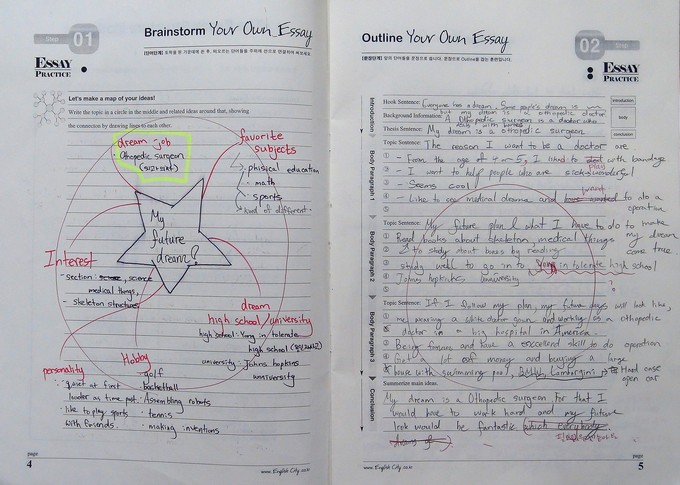 Step 01
Brainstorm Your Own Essay
ESSAY
PRACTICE
Let's make a map of your ideas!
Write the topic in a circle in the middle and related ideas around that, showing
the connection by drawing lines to each other.
dream job
· Othopedic surgeon
favorite
subjects
phisical education
· math
· sports
kind of different.
My
future
dream?
Interest
- section: science
medical things,
- skeleton structures
dream
high school/university
high school: Yong in tolerate
high school
university: Johns hopkins
university
personality
: quiet at first
louder as time past
· like to play sports
with friends.
Hobby
· golf
· basketball
· Assembling robots
· tennis
· making inventions
page
4
www.EnglishCity.co.kr
Outline Your Own Essay
02 Step
ESSAY
PRACTICE
Introduction
Hook Sentence: Everyone has a dream. Some people's dream is
but my dream is a othopedic doctor
Background Information: A othopedic surgeon is a doctor who
Thesis Sentence: My dream is a othopedic surgeon
introduction
body
conclusion
Body Paragraph 1
Topic Sentence: The reason I want to be a doctor are
① - From the age of 4 or 5, I liked to play with bandage
② - I want to help people who are sick
③ - Seems cool
④ - Like to see medical drama and want to do a
operation
Body Paragraph 2
Topic Sentence: My future plan & what I have to do to make
my dream
come true.
① Read books about skeleton, medical things
② to study about bones by reading
③ study well to go in to Yong in tolerate high school
④ Johns hopkines university
Body Paragraph 3
Topic Sentence: If I follow my plan, my future days will look like,
① me wearing a white doctor gown and working as a othopedic
② doctor in a big hospital in America.
③ Being famous and have a excellent skill to do operation
④ Get a lot of money and buying a large
house with swimming pool, BMW, Lamborgini
open car
Conclusion
Summarize main ideas.
My dream is a Othopedic surgeon For that I
would have to work hard and my future
look would be fantastic which everybody
dreams of
page
5
www.EnglishCity.co.kr